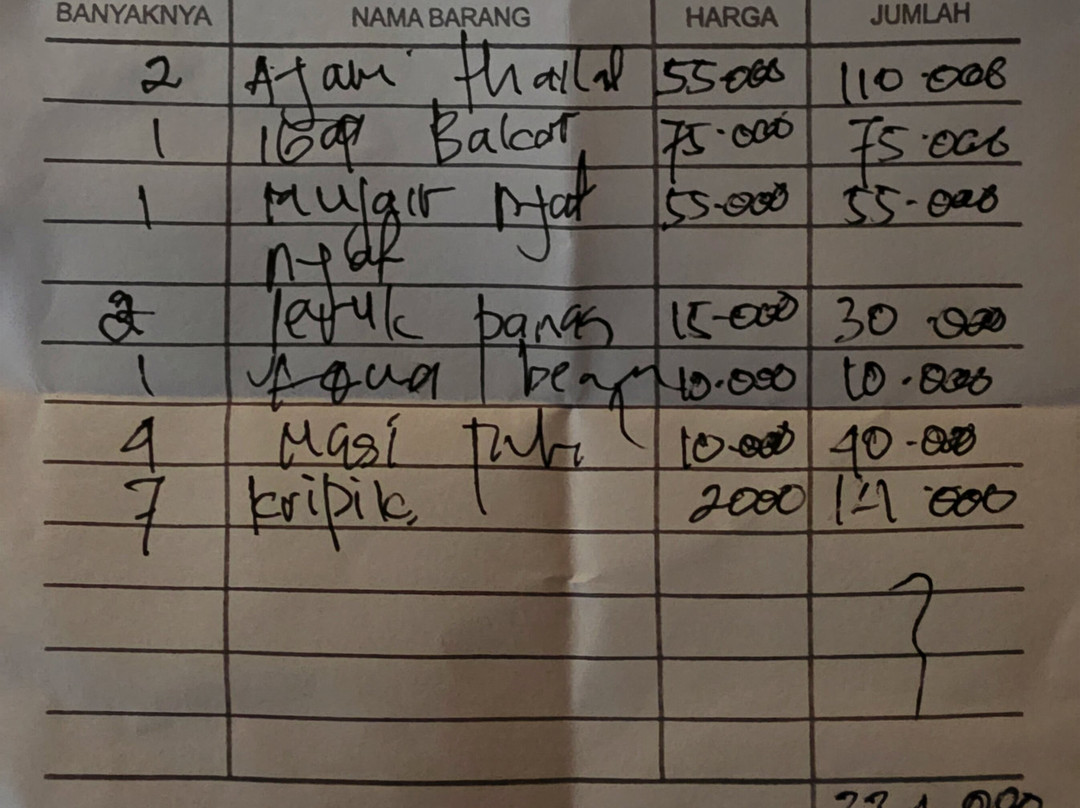 BANYAKNYA NAMA BARANG HARGA JUMLAH
2 Ayam thailad 55.000 110.000
1 Iga Bakar 75.000 75.000
1 Mujair nyat 55.000 55.000
nyat
2 Jeruk panas 15.000 30.000
1 Aqua 10.000 10.000
4 Nasi Puti 10.000 40.000
7 kripik 2000 14.000